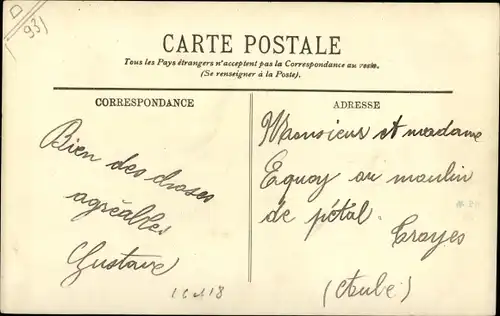 D
(93)
CARTE POSTALE
Tous les Pays étrangers n'acceptent pas la Correspondance au verso.
(Se renseigner à la Poste).
CORRESPONDANCE
Bien des choses
agréables
Gustave
ADRESSE
Monsieur et madame
Equoy au moulin
de pétal.
Troyes
(Aube)